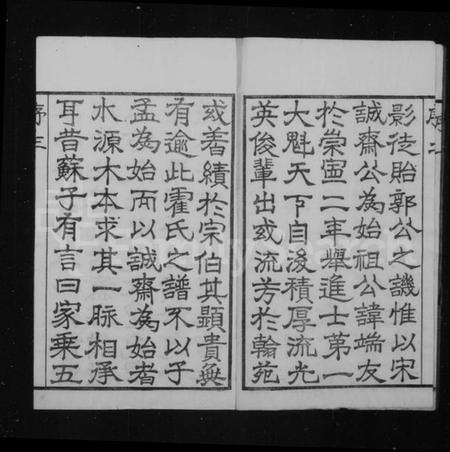 序二
影徒貽郭公之譏惟以宋
誠齋公為始祖公諱端友
於崇寧二年舉進士第一
大魁天下自後積厚流光
英俊輩出或流芳於翰苑
或著績於宗伯其顯貴無
有逾此霍氏之譜不以子
孟為始而以誠齋為始者
水源木本求其一脉相承
耳昔蘇子有言曰家乘五
序三